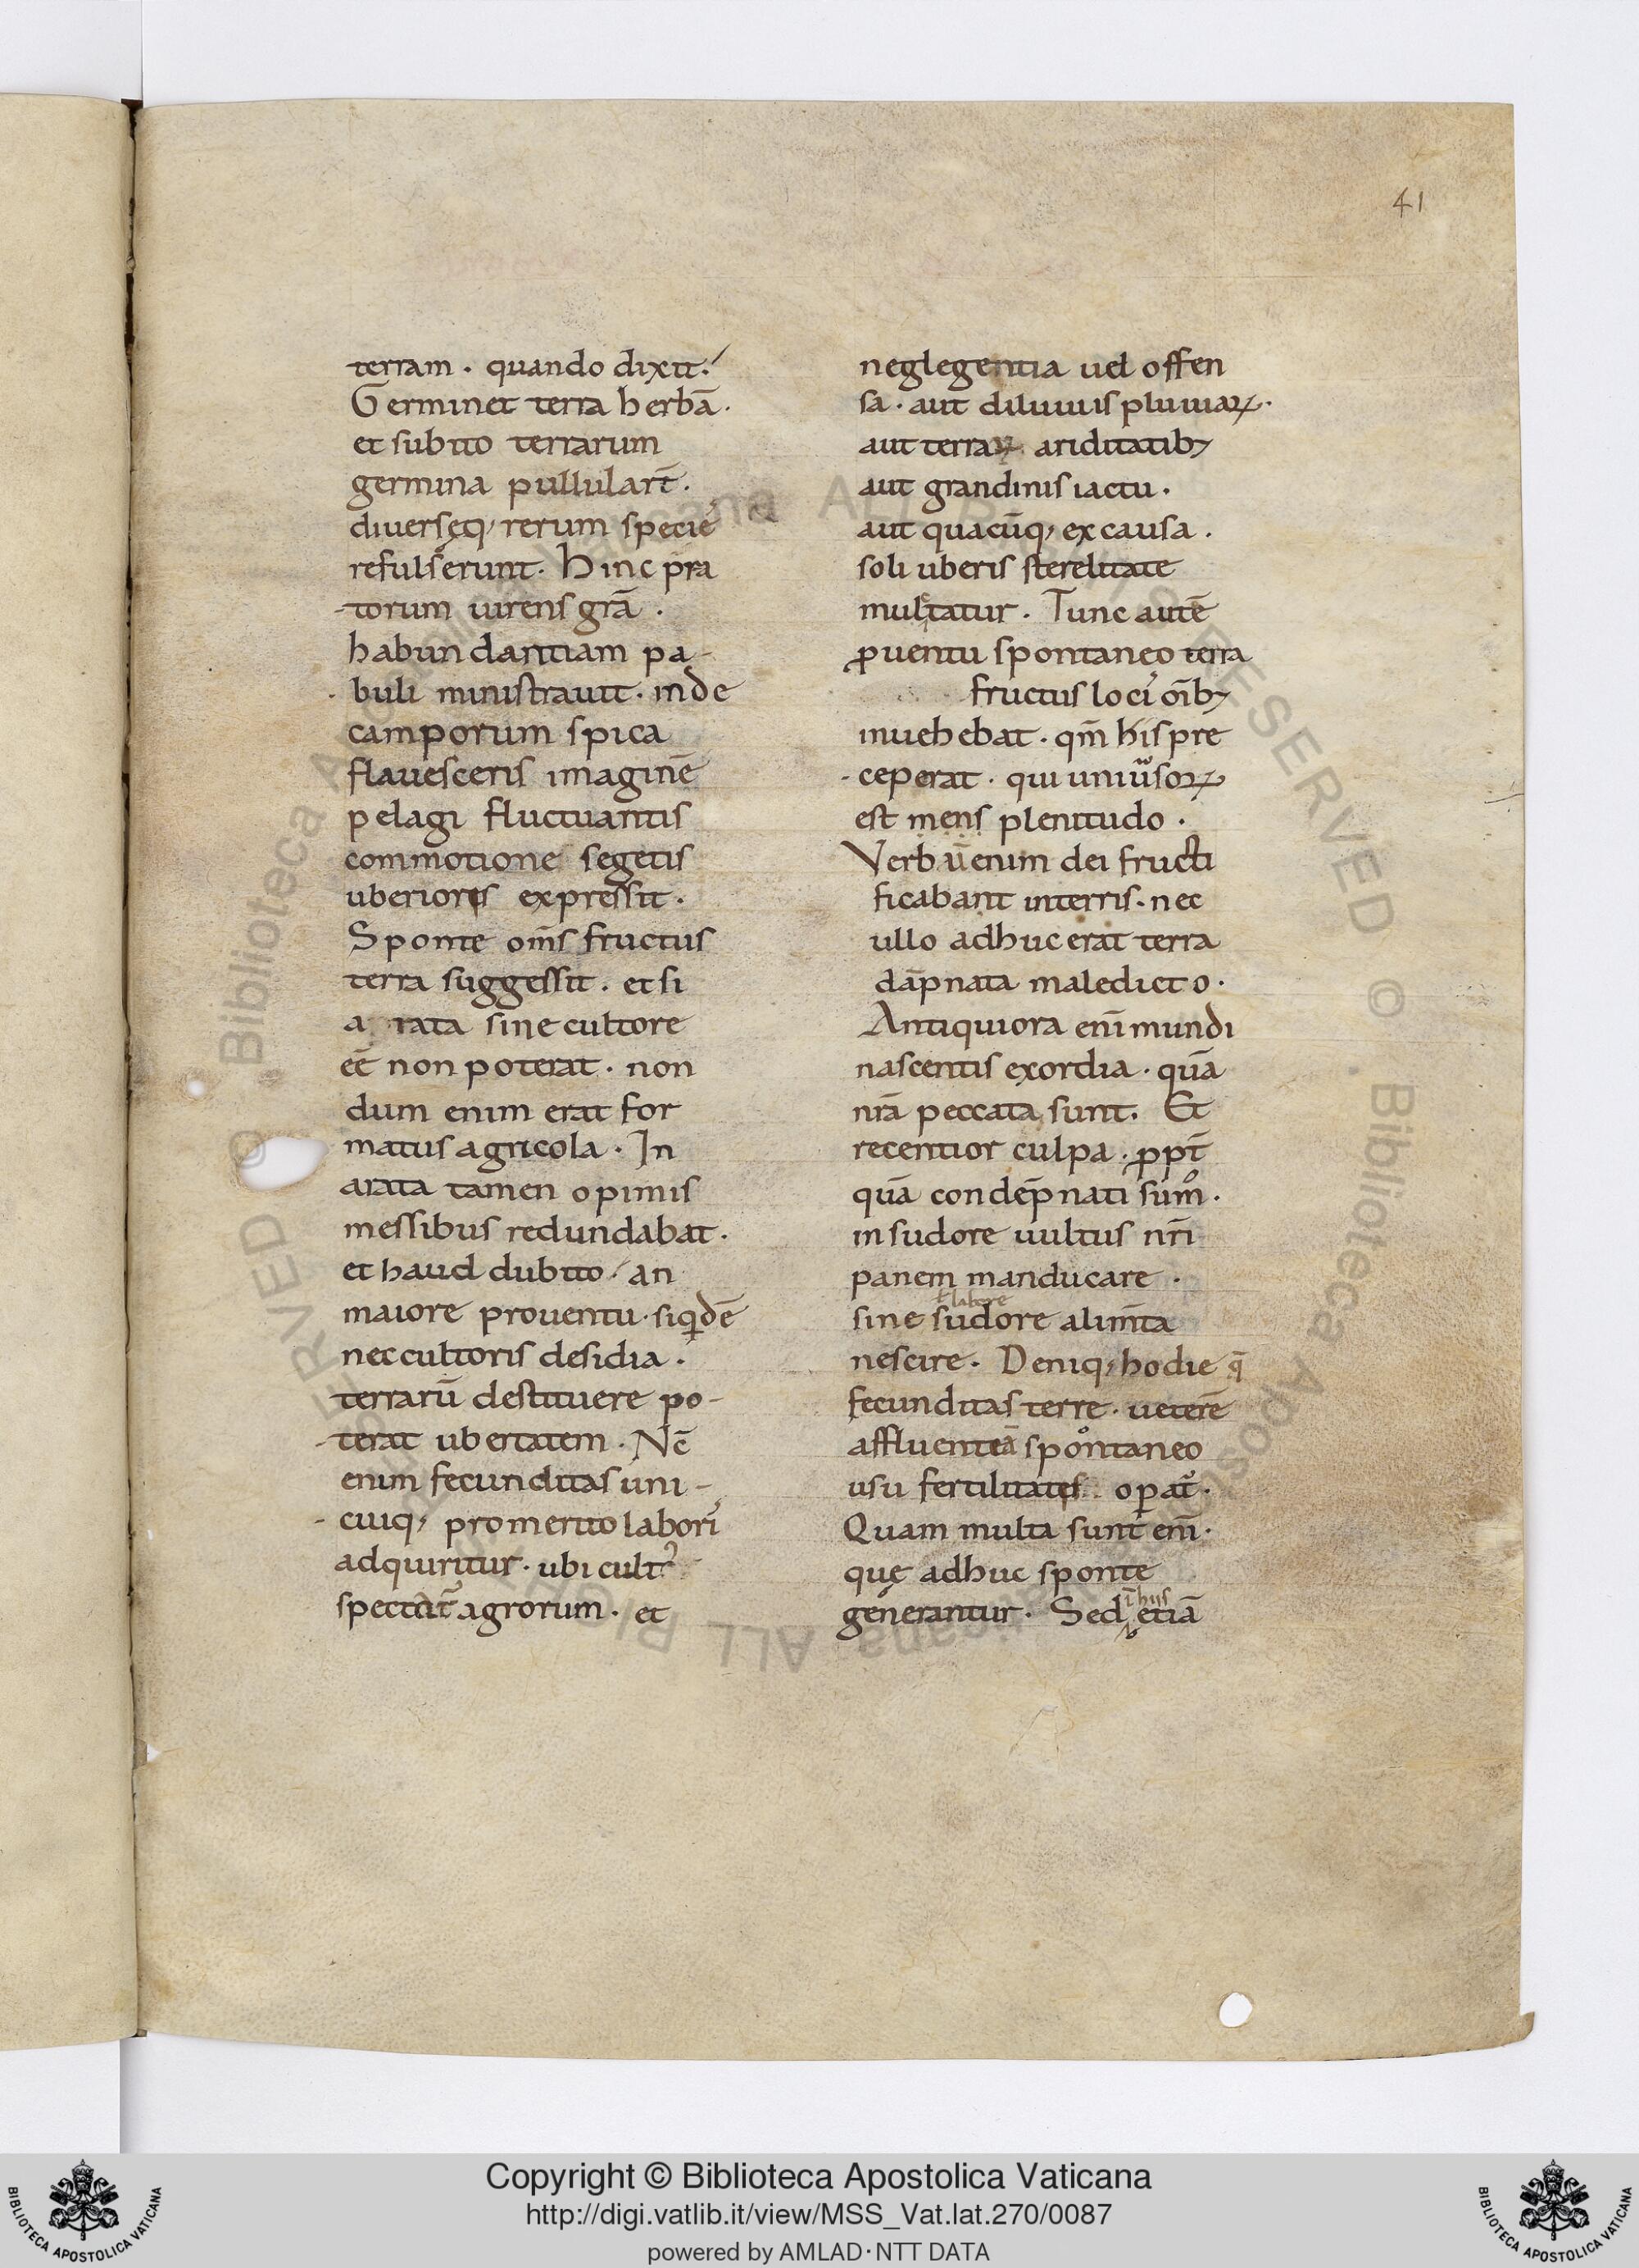 41
terram · quando dixit:
Germinet terra herbā·
et subito terrarum
germina pullular̄t·
diuersęq; rerum specie᾽
refulserunt· Hinc pra
-torum uirens grā ·
habundantiam pa-
buli ministrauit· inde
camporum spica
flauescens imaginē
pelagi fluctuantis
commotione segetis
uberioris expressit·
Sponte om̄s fructus
terra suggessit· et si
a rata sine cultore
eē non poterat· non
dum enim erat for
matus agricola· In
arata tamen opimis
messibus redundabat·
et haud dubito / an
maiore prouentu· siqͥdē
nec cultoris desidia·
terrarū destituere po-
-terat ubertatem· Nc̄
enim fecunditas uni-
-cuiq; pro merito labori᾽
adquiritur· ubi cult᾽
agrorum· et
neglegentia uel offen
sa· aut diluuiis pluuiaꝝ·
aut terraꝝ ariditatib;
aut grandinis iactu·
aut quacūq; ex causa·
soli uberis sterelitate
multatur· Tunc autē
ꝓuentu spontaneo terra
fructus loci᾽ oīb;
inuehebat· qm̄ his pre
-ceperat· qui uniu᷒soꝝ
est mens plenitudo·
Verbū enim dei fructi
ficabant in terris· nec
ullo adhuc erat terra
dāpnata maledicto·
Antiquiora enī mundi
nascentis exordia· quā
nrā peccata sunt· Et
recentior culpa· ꝓpt̄
quā condēpnati sumͦ·
in sudore uultus nrī
panem manducare·
ł labore
sine sudore alim̄ta
nescire· Deniq; hodie q̄
fecunditas terre· ueterē
affluenteā spontaneo
usu fertilitatis oꝑat᷒·
Quam multa sunt enī·
quę adhuc sponte
generantur· Sed etiā
Copyright © Biblioteca Apostolica Vaticana
http://digi.vatlib.it/view/MSS_Vat.lat.270/0087
powered by AMLAD·NTT DATA
BIBLIOTECA APOSTOLICA VATICANA
BIBLIOTECA APOSTOLICA VATICANA